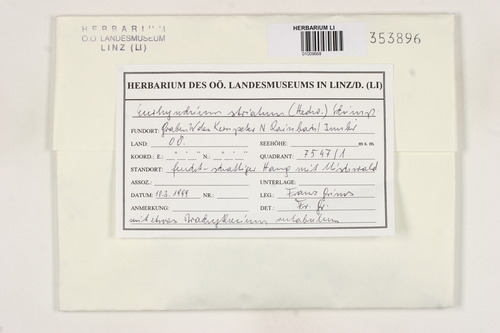 HERBARIUM
O.Ö. LANDESMUSEUM
LINZ (LI)
HERBARIUM LI
01009668
353896
HERBARIUM DES OÖ. LANDESMUSEUMS IN LINZ/D. (LI)
Eurhynchium striatum (Hedw.) Schimp
FUNDORT: Graben W der N Rainbach/Innkr
LAND: OÖ. SEEHÖHE: m s. m.
KOORD.: E.: ° ' " N.: ° ' " QUADRANT: 7547/1
STANDORT: feucht-schattiger Hang mit Mischwald
ASSOZ.: UNTERLAGE:
DATUM: 1999 NR.: LEG.: Franz Grims
ANMERKUNG: DET.: Fr. Gr.
mit etwas Brachythecium rutabulum